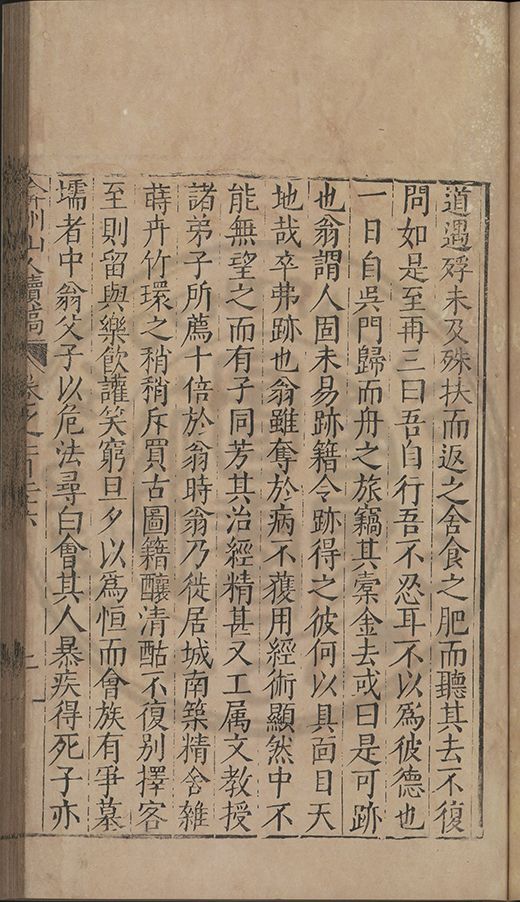 道遇殍未及殊扶而返之舍食之肥而聽其去不復
問如是至再三曰吾自行吾不忍耳不以爲彼德也
一日自吳門歸而舟之旅竊其橐金去或曰是可跡
也翁謂人固未易跡籍令跡得之彼何以具面目天
地哉卒弗跡也翁雖奪於病不獲用經術顯然中不
能無望之而有子同芳其治經精甚又工属文教授
諸弟子所薦十倍於翁時翁乃徙居城南築精舍雜
蒔卉竹環之稍稍斥買古圖籍釀清酤不復別擇客
至則留與樂飲讙笑窮旦夕以爲恒而會族有爭墓
壖者中翁父子以危法尋白會其人暴疾得死子亦
弇州山人續稿 卷之一百